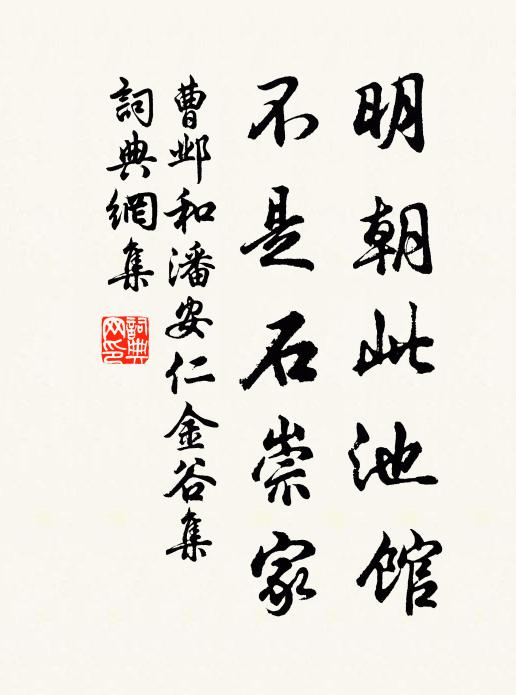 明朝此池館
不是石崇家
曹邺和潘安仁金谷集
詞典網集
詞典网印